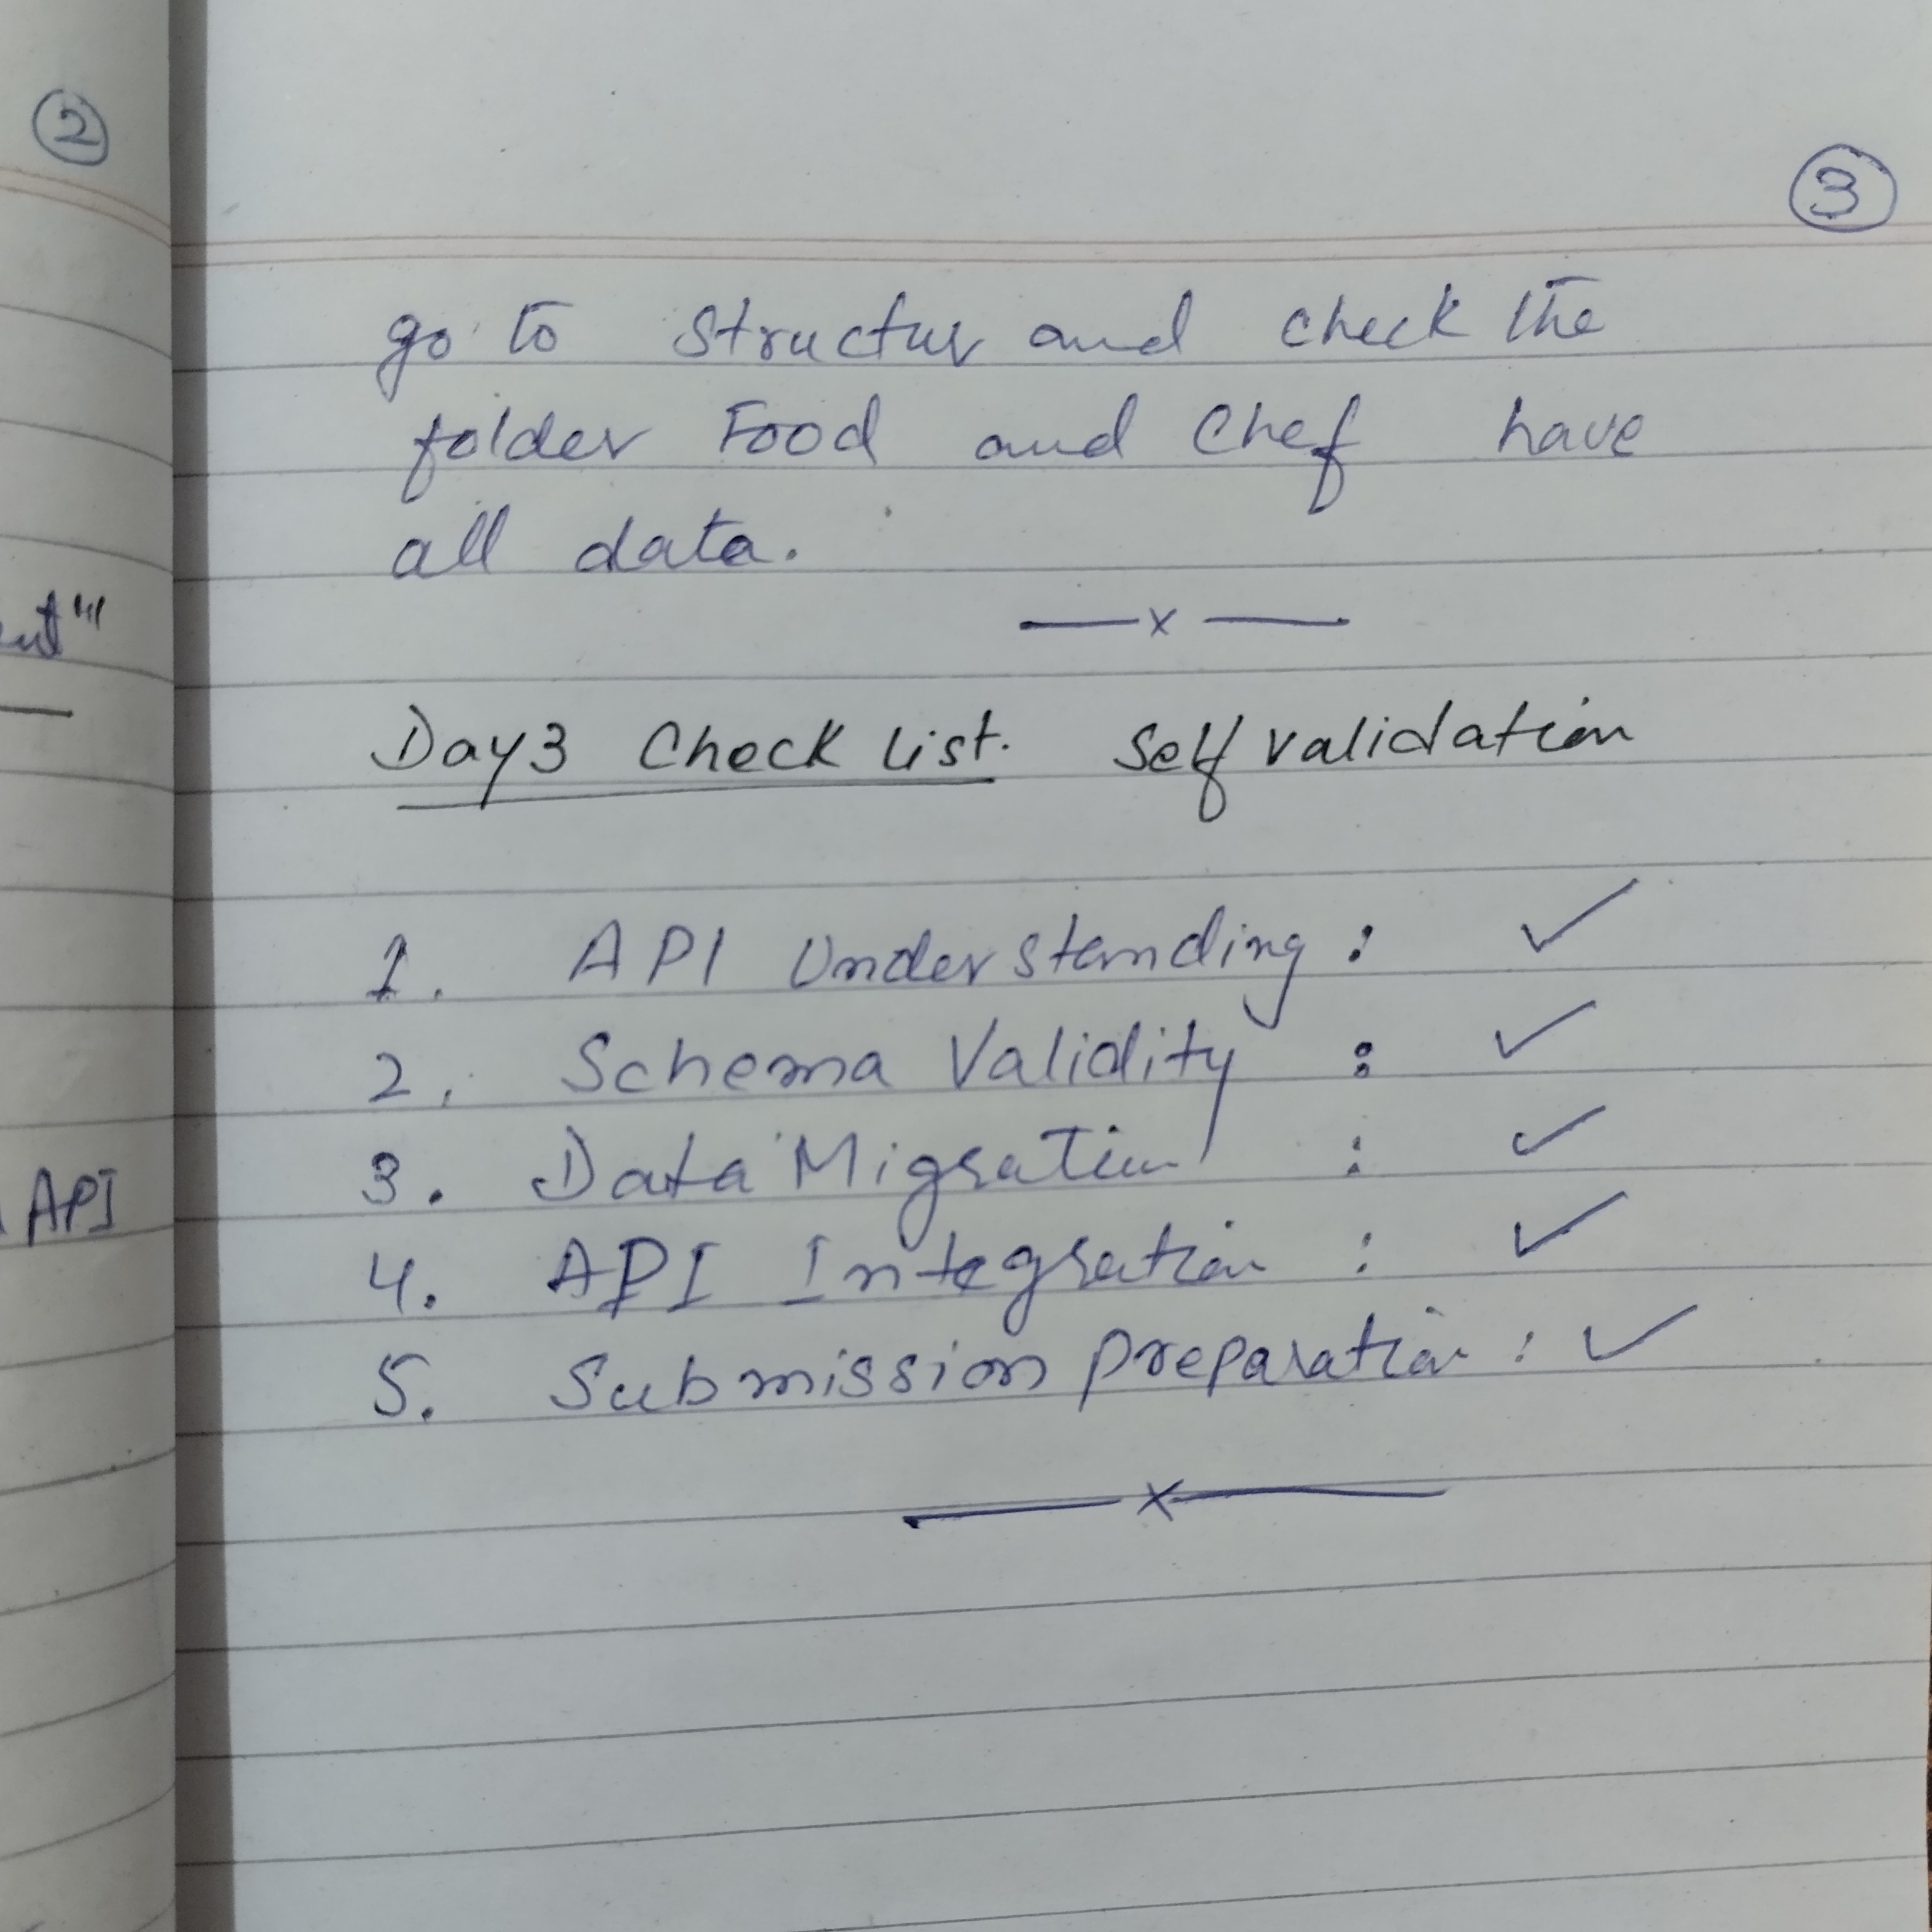 2
ent"
API
3
go to Structur and check the
folder Food and Chef have
all data.
—x—
Day3 Check List. Self validation
1. API Understanding : ✓
2. Schema Validity : ✓
3. Data Migration : ✓
4. API Integration : ✓
5. Submission preparation : ✓
—x—